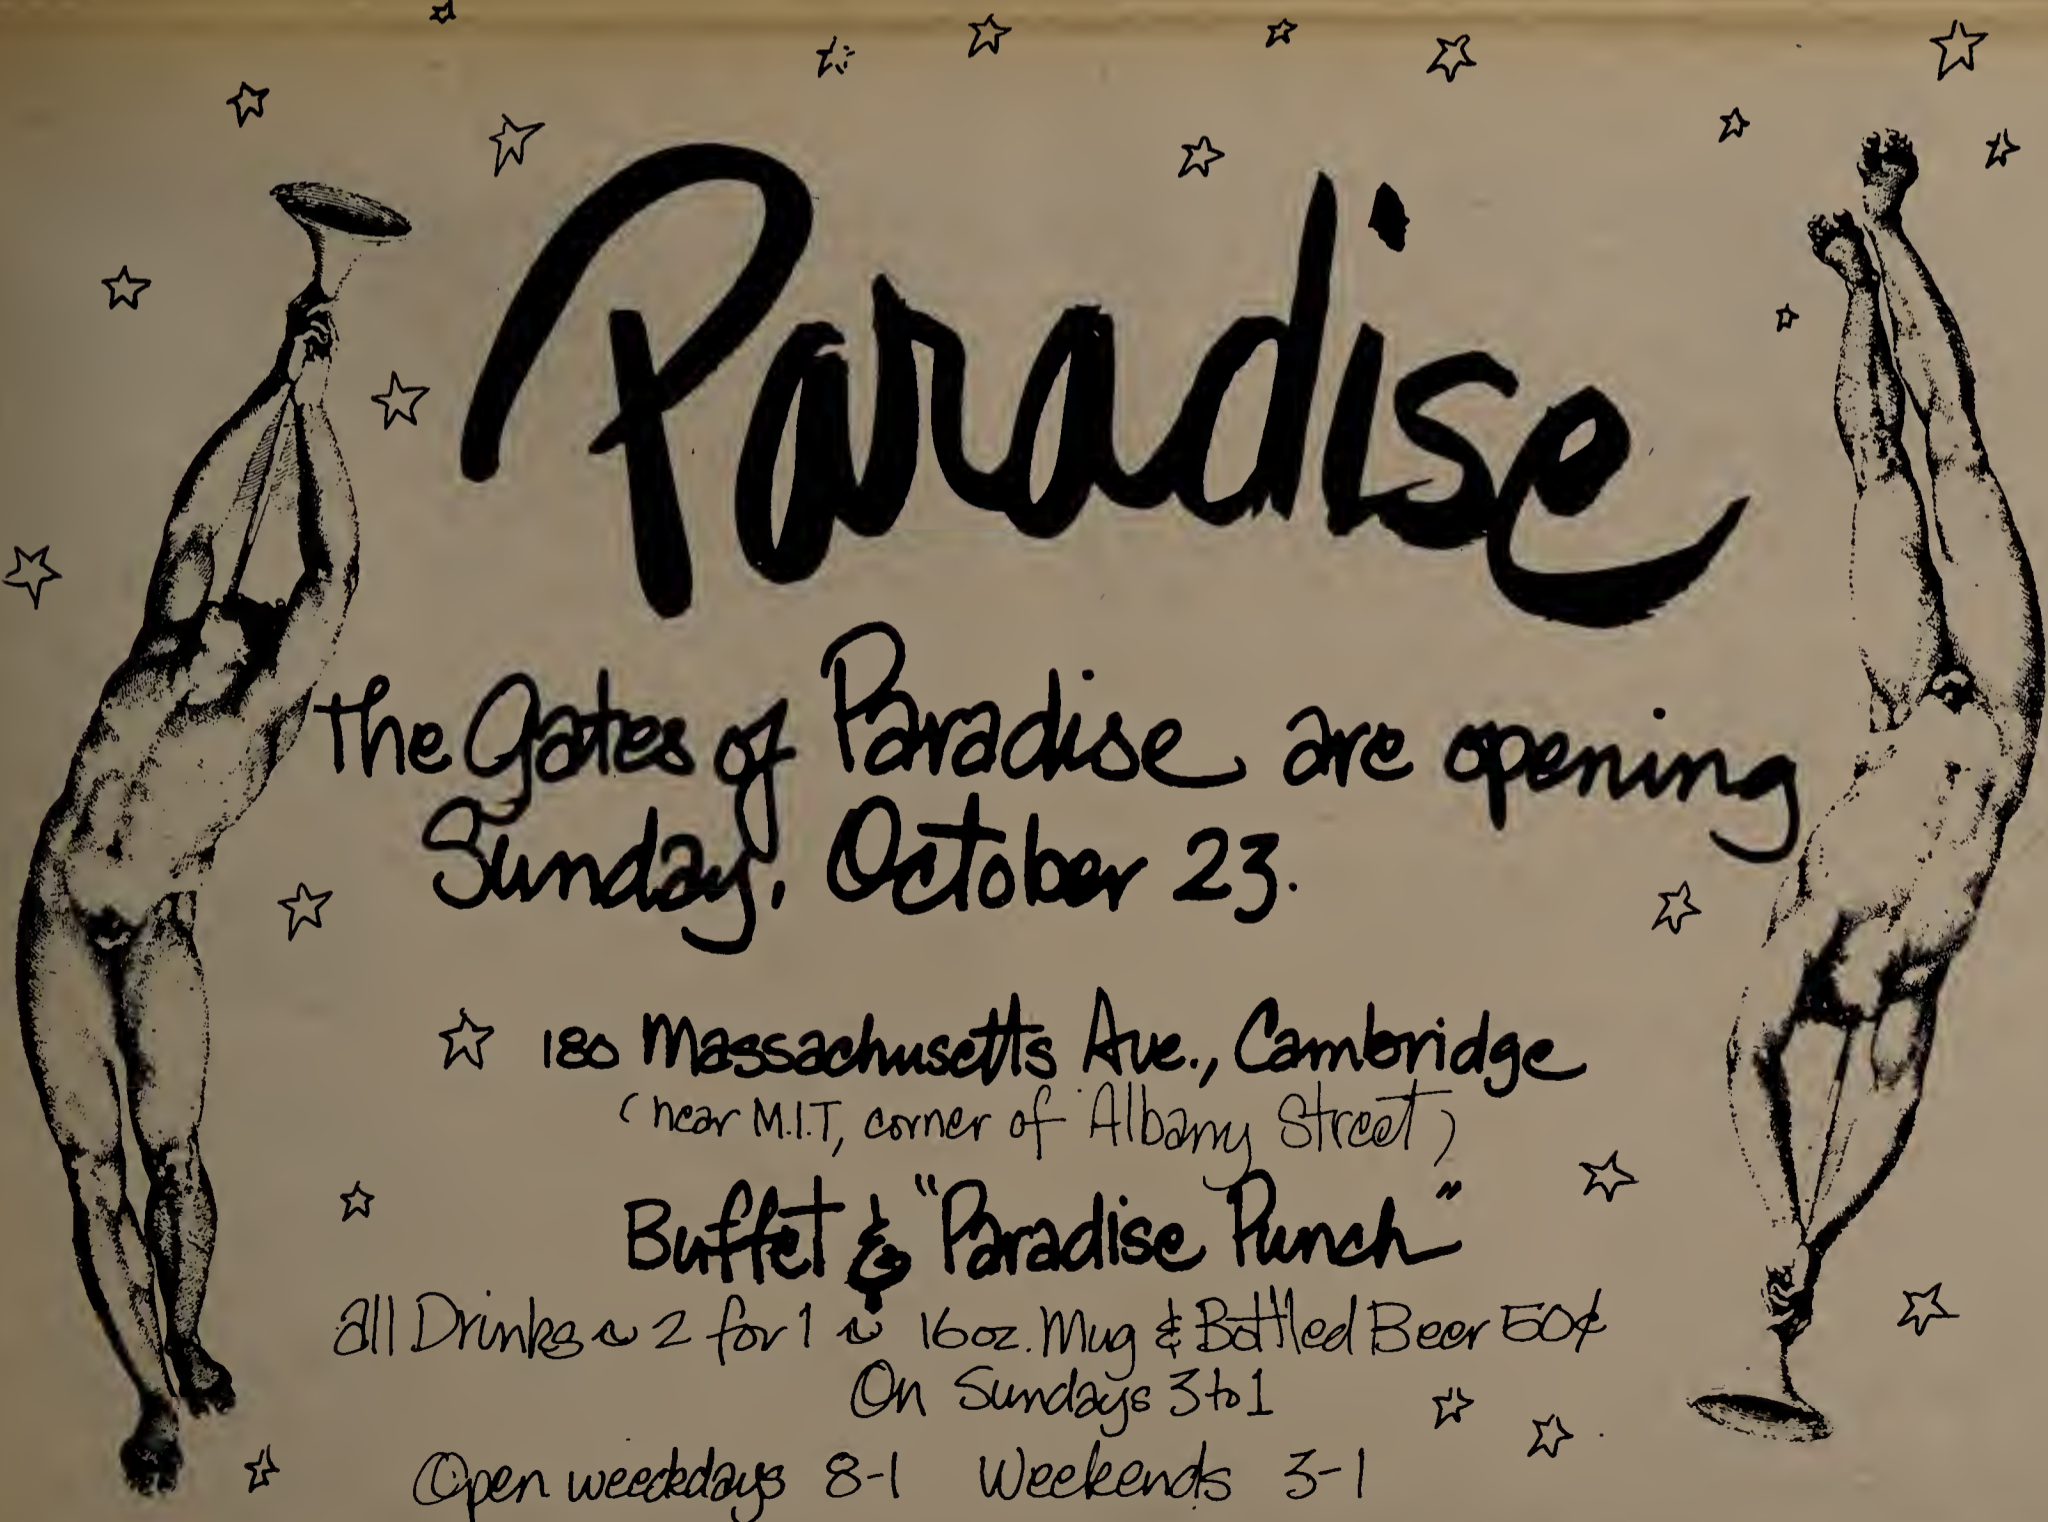 Paradise
The Gates of Paradise are opening
Sunday, October 23.
180 Massachusetts Ave., Cambridge
(near M.I.T, corner of Albany Street)
Buffet & "Paradise Punch"
all Drinks ~ 2 for 1 ~ 16oz. Mug & Bottled Beer 50¢
On Sundays 3 to 1
Open weekdays 8-1 Weekends 3-1